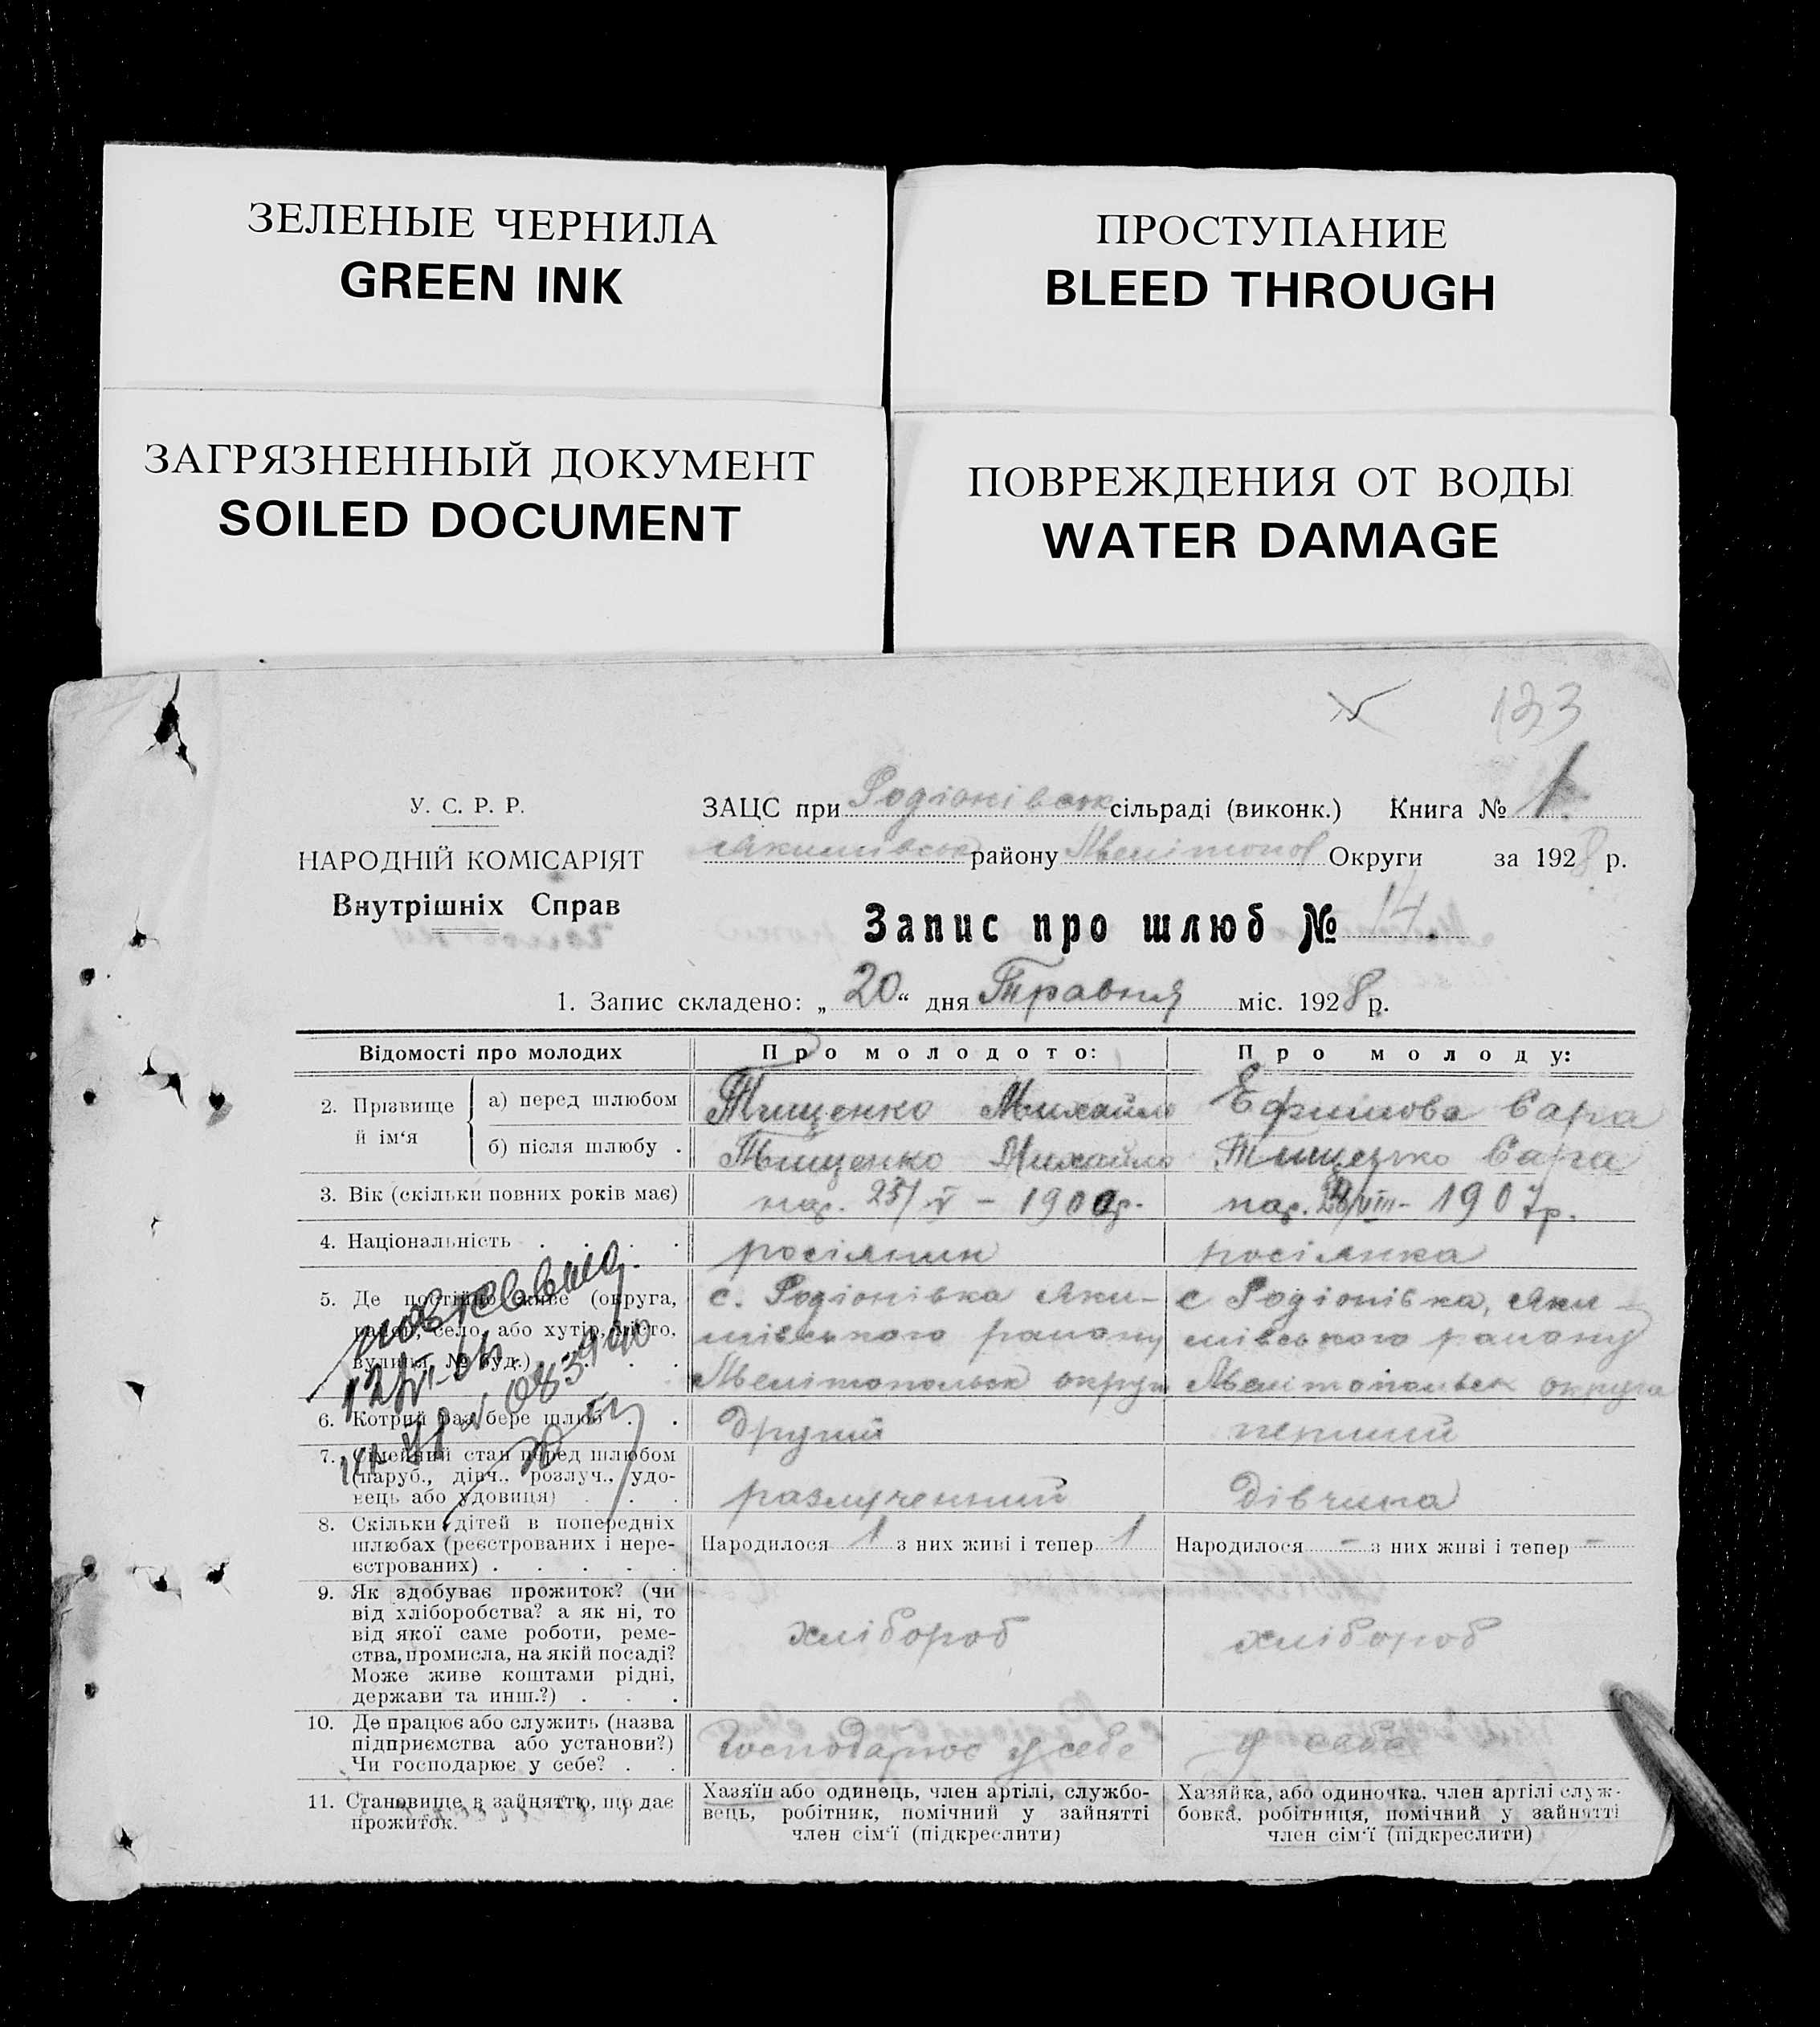 ЗЕЛЕНЫЕ ЧЕРНИЛА
GREEN INK
ПРОСТУПАНИЕ
BLEED THROUGH
ЗАГРЯЗНЕННЫЙ ДОКУМЕНТ
SOILED DOCUMENT
ПОВРЕЖДЕНИЯ ОТ ВОДЫ
WATER DAMAGE
133
У. С. Р. Р.
НАРОДНІЙ КОМІСАРІЯТ
Внутрішніх Справ
ЗАЦС при Родіонівськ сільраді (виконк.) Книга № 1.
Якимівськ району Мелітопол Округи за 1928 р.
Запис про шлюб № 14.
1. Запис складено: „20“ дня Травня міс. 1928 р.
Відомості про молодих
Про молодого:
Про молоду:
2. Прізвище й ім‘я
а) перед шлюбом
Тищенко Михайло
Ефимова Сара
б) після шлюбу .
Тищенко Михайло
Тищенко Сара
3. Вік (скільки повних років має)
нар. 25/V – 190 р.
нар. /VIII – 1907р.
4. Національність . . . .
росіянин
росіянка
5. Де постійно живе (округа,
район, село, або хутір, місто,
вулиця, № буд.) . . . .
с. Родіонівка Яки-
мівського району
Мелітопольськ округи
с Родіонівка, Яки-
мівського району
Мелітопольськ округи
6. Котрий раз бере шлюб . .
другий
перший
7. Сімейний стан перед шлюбом
(паруб., дівч., розлуч., удо-
вець або удовиця) . . .
разлученний
дівчина
8. Скільки дітей в попередніх
шлюбах (реєстрованих і нере-
єстрованих) . . . . .
Народилося 1 з них живі і тепер 1
Народилося – з них живі і тепер –
9. Як здобуває прожиток? (чи
від хліборобства? а як ні, то
від якої саме роботи, реме-
ства, промисла, на якій посаді?
Може живе коштами рідні,
держави та инш.?) . . .
хлібороб
хлібороб
10. Де працює або служить (назва
підприємства або установи?)
Чи господарює у себе? . .
Господарює у себе
у себе
11. Становище в зайняттю, що дає
прожиток.
Хазяїн або одинець, член артілі, службо-
вець, робітник, помічний у зайнятті
член сім‘ї (підкреслити)
Хазяйка, або одиночка, член артілі служ-
бовка, робітниця, помічний у зайнятті
член сім‘ї (підкреслити)